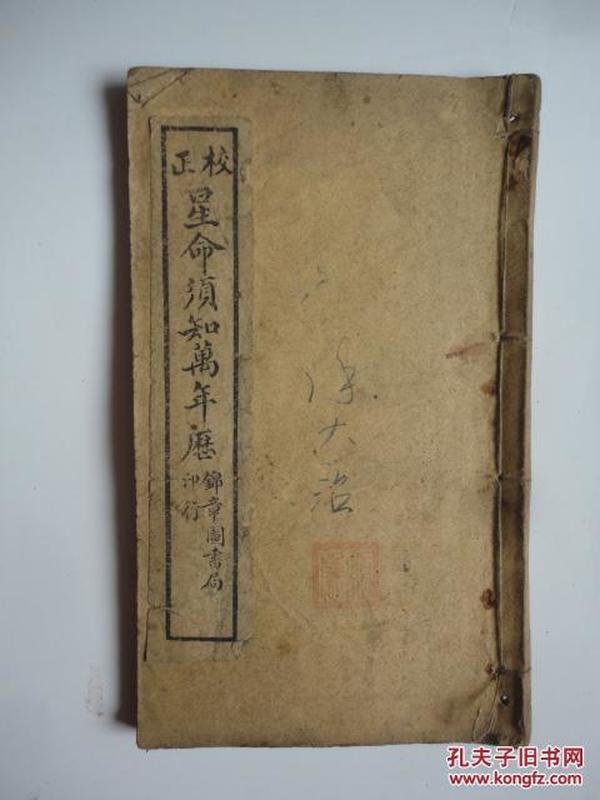 校正
星命須知萬年歷
錦章圖書局
印行
徐大治
孔夫子旧书网
www.kongfz.com